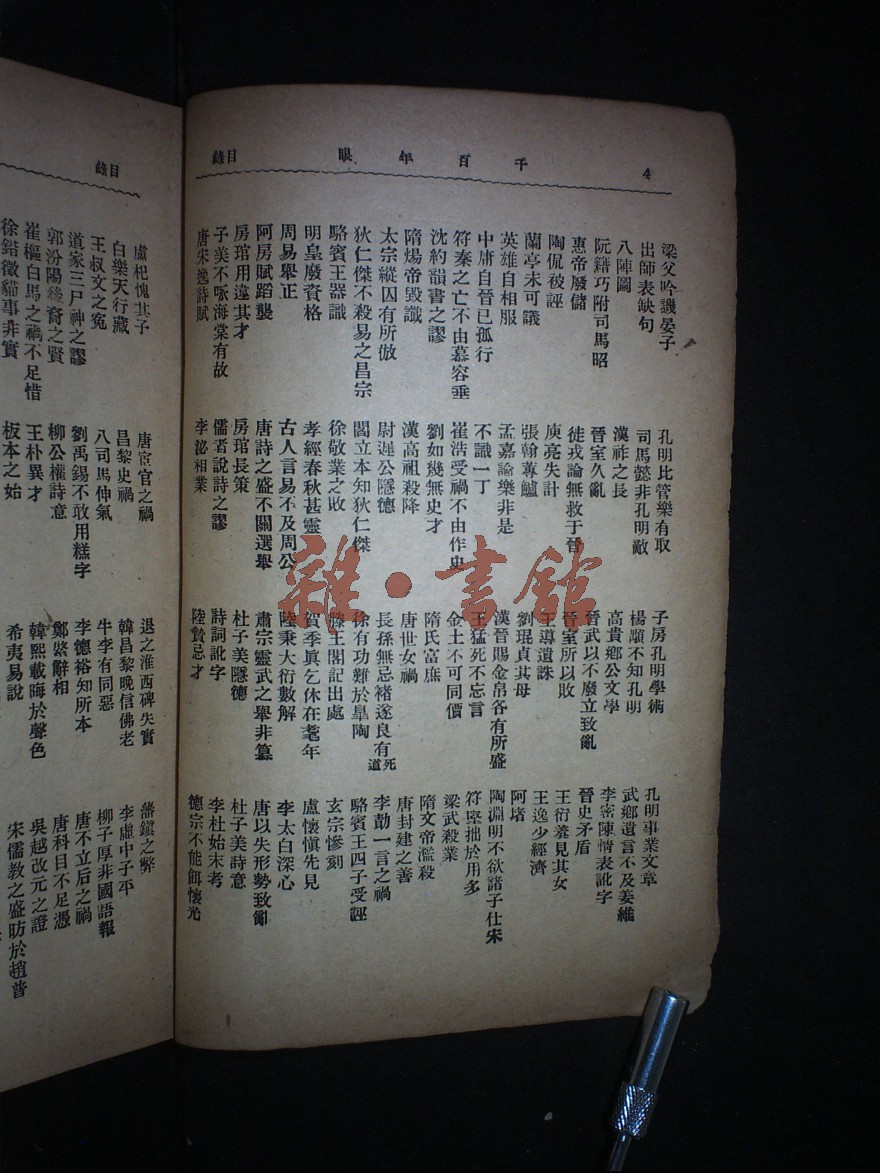 4
千百年眼
目錄
梁父吟譏晏子
孔明比管樂有取
子房孔明學術
孔明事業文章
出師表缺句
司馬懿非孔明敵
楊顒不知孔明
武鄉遺言不及姜維
八陣圖
漢祚之長
高貴鄉公文學
李密陳情表訛字
阮籍巧附司馬昭
晉室久亂
晉武以不廢立致亂
晉史矛盾
惠帝廢儲
徙戎論無救于晉
晉室所以敗
王衍羞見其女
陶侃被誣
庾亮失計
王導遺誅
王逸少經濟
蘭亭未可議
張翰蓴鱸
劉琨貞其母
阿堵
英雄自相服
孟嘉論樂非是
漢晉賜金帛各有所盛
陶淵明不欲諸子仕宋
中庸自晉已孤行
不識一丁
王猛死不忘言
符堅拙於用多
符秦之亡不由慕容垂
崔浩受禍不由作史
金土不可同價
梁武殺業
沈約韻書之謬
劉如幾無史才
隋氏富庶
隋文帝濫殺
隋煬帝毀讖
漢高祖殺降
唐世女禍
唐封建之善
太宗縱囚有所倣
尉遲公隱德
長孫無忌褚遂良有死道
李勣一言之禍
狄仁傑不殺易之昌宗
閻立本知狄仁傑
徐有功難於臯陶
駱賓王四子受誣
駱賓王器識
徐敬業之敗
滕王閣記出處
玄宗慘刻
明皇廢資格
孝經春秋甚靈
賀季眞乞休在耄年
盧懷愼先見
周易舉正
古人言易不及周公
陸秉大衍數解
李太白深心
阿房賦蹈襲
唐詩之盛不關選舉
肅宗靈武之舉非篡
唐以失形勢致亂
房琯用違其才
房琯長策
杜子美隱德
杜子美詩意
子美不咏海棠有故
儒者說詩之謬
詩詞訛字
李杜始末考
唐宋逸詩賦
李泌相業
陸贄忌才
德宗不能餌懷光
目錄
盧杞愧其子
唐宦官之禍
退之淮西碑失實
藩鎭之弊
白樂天行藏
昌黎史禍
韓昌黎晚信佛老
李虛中子平
王叔文之寃
八司馬伸氣
牛李有同惡
柳子厚非國語報
道家三尸神之謬
劉禹錫不敢用糕字
李德裕知所本
唐不立后之禍
郭汾陽後裔之賢
柳公權詩意
鄭綮辭相
唐科目不足憑
崔樞白馬之禍不足惜
王朴異才
韓熙載晦於聲色
吳越改元之證
徐鍇徵貓事非實
板本之始
希夷易說
宋儒教之盛昉於趙普
雜·書館